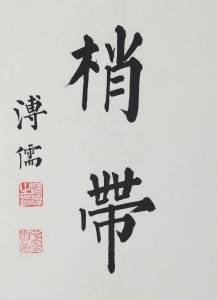 梢帶
溥儒